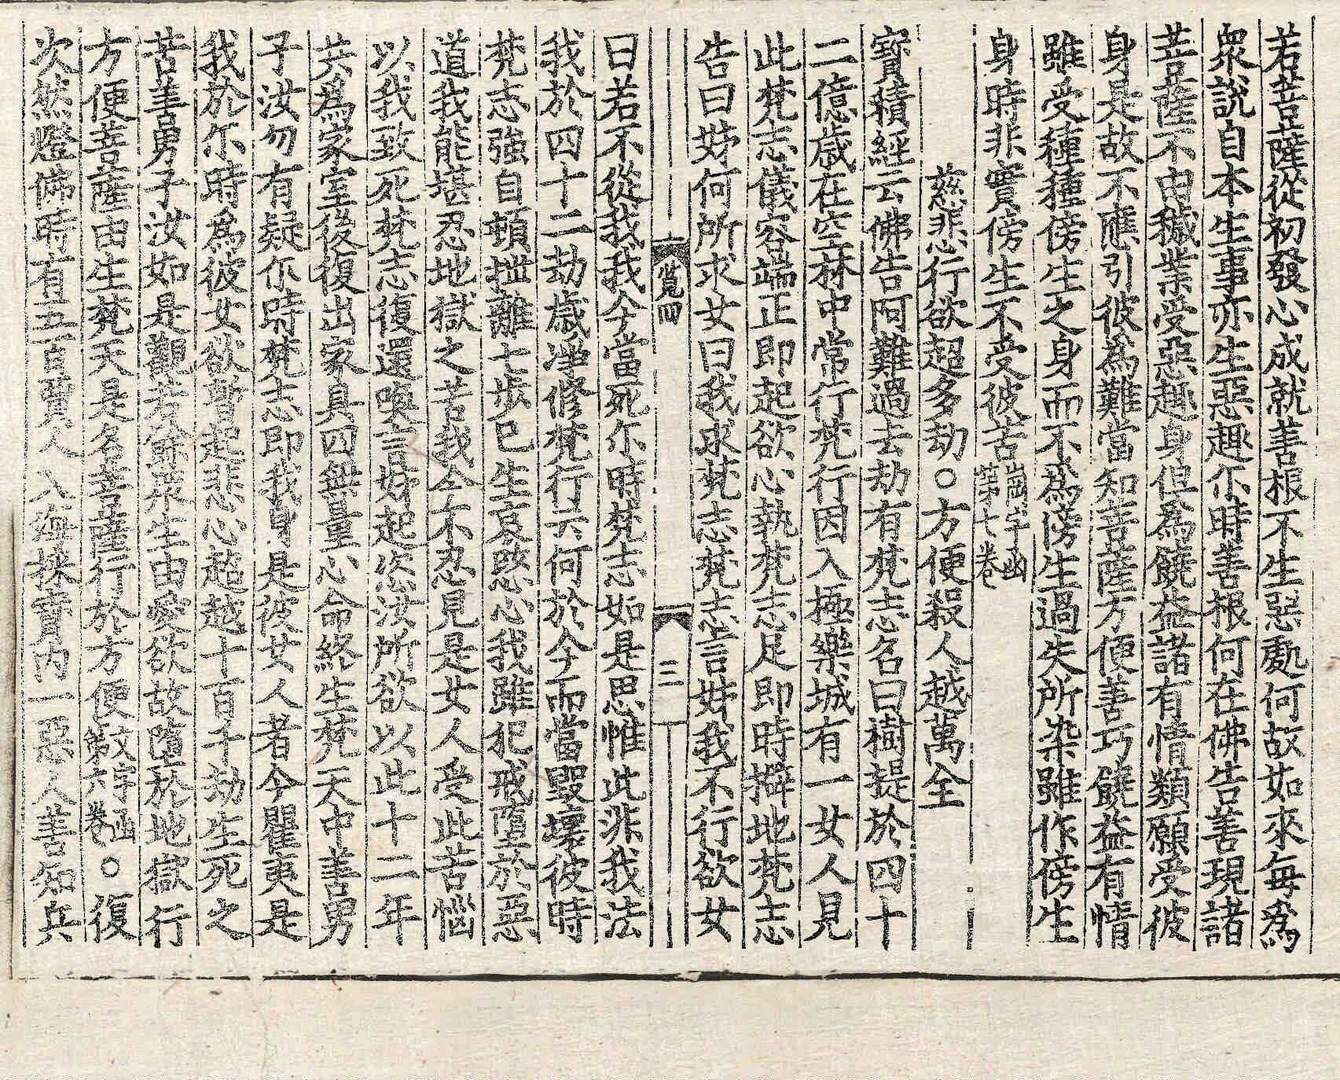 若菩薩從初發心成就善根不生惡處何故如來每爲
衆說自本生事亦生惡趣尒時善根何在佛告善現諸
菩薩不由穢業受惡趣身但爲饒益諸有情類願受彼
身是故不應引彼爲難當知菩薩方便善巧饒益有情
雖受種種傍生之身而不爲傍生過失所染雖作傍生
身時非實傍生不受彼苦 崗字函第七卷
慈悲行欲超多劫○方便殺人越萬全
寶積經云佛告阿難過去劫有梵志名曰樹提於四十
二億歲在空林中常行梵行因入極樂城有一女人見
此梵志儀容端正即起欲心執梵志足即時擗地梵志
告曰姊何所求女曰我求梵志梵志言姊我不行欲女
覽四 三
曰若不從我我今當死尒時梵志如是思惟此非我法
我於四十二劫歲淨修梵行云何於今而當毀壞彼時
梵志強自頓拽離七步已生哀愍心我雖犯戒墮於惡
道我能堪忍地獄之苦我今不忍見是女人受此苦惱
以我致死梵志復還喚言姊起恣汝所欲以此十二年
共爲家室後復出家具四無量心命終生梵天中善男
子汝勿有疑尒時梵志即我身是彼女人者今瞿夷是
我於尒時爲彼女欲暫起悲心超越十百千劫生死之
苦善男子汝如是觀若餘衆生由愛欲故墮於地獄行
方便菩薩由生梵天是名菩薩行於方便 文字函第六卷 ○復
次然燈佛時有五百賈人入海採寶內一惡人善知兵